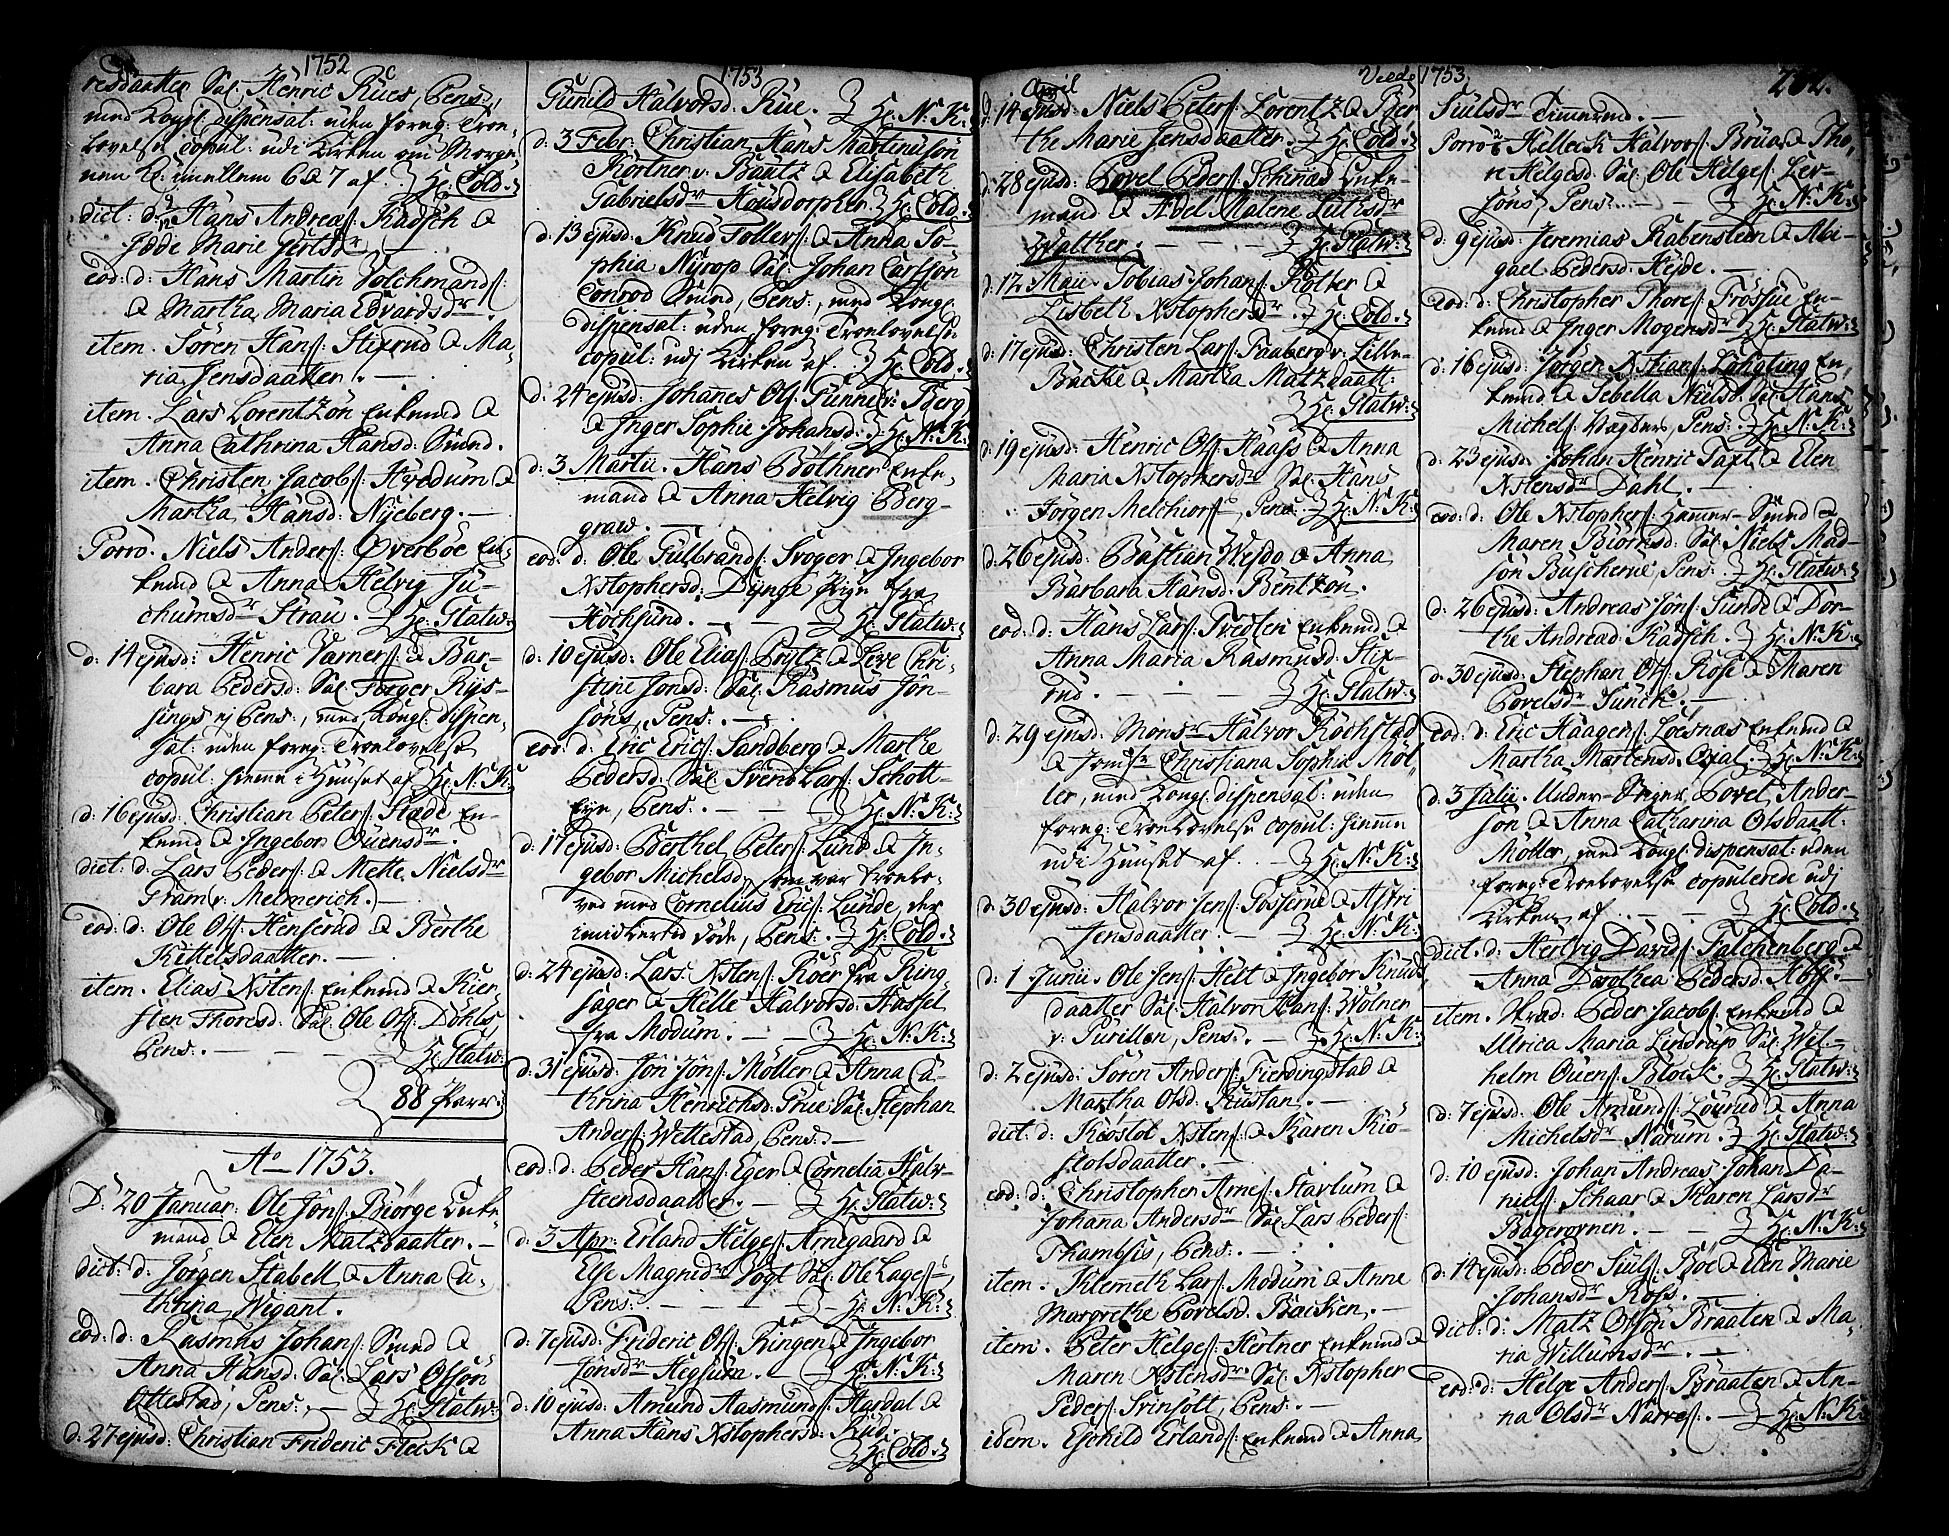 1752
resdaatter Sal. Henric Rües, Pens:,
med Kongl. dispensat: uden foreg: Troe-
lovelse copul: udi Kirken om Morge-
nen Kl. imellem 6 & 7 af. Hr. Cold.
dict: d: Hans Andreas Kadsch &
Jæde Marie Jertsdr
eod: d: Hans Martin Volchmands:
& Martha Maria Edvardsdr.
item. Sören Hans: Stixrud & Ma-
ria Jensdaatter.
item. Lars Lorentzön Enkemd &
Anna Cathrina Hansd: Smud.
item. Christen Jacobs: Hvedum &
Martha Hansd: Nyeberg.
Porrò. Niels Anders: Øverböe Enke-
kemd & Anna Helvig Jü-
chümsdr Strau. Hr. Statw:
d: 14 ejusd: Henric Varners: & Bar-
bara Pedersd: Sal. Törger Rys-
sings ej Pens:, med Kongl: dispen-
sat: uden foreg: Troelovelse
copul: hiemme i Huuset af Hr. N: K:
d: 16 ejusd: Christian Peters: Stade En-
kemd & Ingebor Ouensdr.
dict: d: Lars Peders: & Mette Nielsdr
Gram v. Melmerich.
eod: d: Ole Ols: Henserud & Berthe
Kittelsdaatter.
item. Elias Xstens: Enkemd & Kier-
sten Thoresd: Sal. Ole Ols: Döhls,
Pens:. Hr. Statw:
88 Parr:
Ao 1753.
D: 20 Januar: Ole Jöns: Biörge Enke-
mand & Elen Matzdaatter.
dict: d: Jörgen Stabell & Anna Ca-
thrina Wigant.
eod: d: Rasmus Johans: Smud &
Anna Hansd: Sal. Lars Olsön
Ottestad, Pens:. Hr. Statw:
d: 27 ejusd: Christian Frideric Fleck &
1753
Gunild Halvorsd: Rue. Hr. N: K:
d: 3 Febr: Christian Hans Martinusön
Körtner v. Baatz & Elisabeth
Gabrielsdr Hausdorpher. Hr. Cold.
d: 13 ejusd: Knud Tollers: & Anna So-
phia Nyrop Sal: Johan Carlsön
Conrod Smud, Pens:, med Kongl:
dispensat: uden foreg: Troelovelse
copul: udj Kirken af. Hr. Cold.
d: 24 ejusd: Johannes Ols: Gunne v: Berg
& Inger Sophie Johansd: Hr. N: K:
d: 3 Martii. Hans Böthner Enke-
mand & Anna Helvig Berg-
graw.
eod: d: Ole Gulbrands: Svoger & Ingebor
Xstophersd: Dynge Pige fra
Hochsund. Hr. Statw:
d: 10 ejusd: Ole Elias: Prytz & Live Chri-
stine Jonsd: Sal. Rasmus Jön-
söns, Pens:.
eod: d: Eric Erics: Sandberg & Marthe
Pedersd: Sal. Svend Lars: Schott-
Eye, Pens:. Hr. N: K:
d: 17 ejusd: Berthel Peters: Lund & In-
gebor Michelsd: som var troelo-
ved med Cornelius Erics: Lunde, der
imidlertid döde, Pens:. Hr. Cold.
d: 24 ejusd: Lars Xstens: Röer fra Ring-
sager & Helle Halvorsd: Hassel
fra Modum. Hr. N: K:
d: 31 ejusd: Jön Jöns: Möller & Anna Ca-
thrina Henrichsd: Grue Sal. Stephan
Anders: Wettestad, Pens:.
eod: d: Peder Hans: Eger & Cornelia Halv-
steensdaatter. Hr. Statw:
d: 3 Apr: Erland Helges: Arnegaard &
Else Magnidr Vogt Sal. Ole Lages:,
Pens:. Hr. N: K:
d: 7 ejusd: Frideric Ols: Ringen & Ingebor
Jonsdr Hegsum. Hr. N: K:
d: 10 ejusd: Amund Aasmunds: Hardal &
Anna Hans Xstophersd: Rud.
Hr. Cold.
April
d: 14 ejusd: Niels Peters: Lorentz & Ber-
the Marie Jensdaatter. Hr. Cold.
d: 28 ejusd: Povel Peders: Schinnes Enke-
mand & Adel Malene Luthsdr
Walther. Hr. Statw:
d: 12 Maii. Tobias Johans: Kolter &
Lisbeth Xstophersdr. Hr. Cold.
d: 17 ejusd: Christen Lars: Faaberg v: Lille-
Backe & Martha Matzdaatt:
Hr. Statw:
d: 19 ejusd: Henric Ols: Haass & Anna
Maria Xstophersdr Sal. Hans
Jörgen Melchiors:, Pens: Hr. N: K:
d: 26 ejusd: Bastian Wesdo & Anna
Barbara Hansd: Bentzön.
eod: d: Hans Lars: Tvedten Enkemd &
Anna Maria Rasmusd: Stix-
rud. Hr. Statw:
d: 29 ejusd: Monsr Halvor Kochstad
& Jomfr Christiana Sophia Möl-
ler, med Kongl. dispensat: uden
foreg: Troelovelse copul: hiemme
udi Huuset af. Hr. N: K:
d: 30 ejusd: Halvor Jens: Fosserud & Astri
Jensdaatter. Hr. N: K:
d: 1 Junii. Ole Jens: Helt & Ingebor Knuds-
daatter Sal. Halvor Hans: Wölner
v: Purillen, Pens:. Hr. N: K:
d: 2 ejusd: Sören Anders: Fierdingstad &
Martha Olsd: Kustan.
dict: d: Kiostol Xstens: & Karen Kio-
stolsdaatter.
eod: d: Christopher Arnes: Starlum &
Johana Andersdr Sal. Lars Peders:
Thambsis, Pens:.
item. Klemeth Lars: Modum & Anne
Margrethe Povelsd: Backen.
item. Peter Helges: Hertner Enkemd &
Maren Xstensdr. Sal. Xstopher
Peders: Svinsölt, Pens:.
idem. Eschild Erlands: Enkemd & Anna
Vende 1753.
262.
Siulsdr Timmermd.
Porrò Helleik Halvors: Brua & Tho-
re Helgesd: Sal. Ole Helges: Ler-
söns, Pens:. Hr. N: K:
d: 9 ejusd: Jeremias Rabenstein & Abi-
gael Pedersd: Hejde.
eod: d: Christopher Thores: Frossue En-
kemd & Inger Mogensdr Hr. Statw:
d: 16 ejusd: Jörgen Xtians: Langting En-
kemd & Sebella Nielsd: Sal. Hans
Michels: Wagters, Pens: Hr. N: K:
d: 23 ejusd: Johan Henric Taxt & Elen
Xstensdr Dahl.
eod: d: Ole Xstophers: Hammer-Smud &
Maren Biörnsd: Sal. Niels Mad-
sön Buscherue, Pens: Hr. Statw:
d: 26 ejusd: Andreas Jöns: Sunde & Dor-
the Andread: Kadsch. Hr. N: K:
d: 30 ejusd: Stephan Ols: Rose & Maren
Povelsdr Funck.
eod: d: Eric Haagens: Loesnæs Enkemd &
Martha Martensd: Opsal. Hr. N: K:
d: 3 Julii. Under-Voger Povel Ander-
sön & Anna Catharina Olsdaatt:
Möller, med Kongl: dispensat: uden
foreg: Troelovelse copulerede udj
Kirken af. Hr. Cold.
dict: d: Hertvig Davids: Falchenberg &
Anna Dorothea Pedersd: Hoff.
item. Strad: Peder Jacobs: Enkemd &
Ulrica Maria Lindrup Sal: Wil-
helm Ouens: Block. Hr. Statw:
d: 7 ejusd: Ole Amunds: Lourud & Anna
Michelsdr Narum. Hr. Statw:
d: 10 ejusd: Johan Andreas Johan Da-
niels: Schaar & Karen Larsdr
Bagerovnen. Hr. N: K:
d: 14 ejusd: Peder Siuls: Böe & Elen Marie
Johansdr Ross.
dict: d: Matz Olsön Braaten & Ma-
ria Willumsdr.
eod: d: Helge Anders: Braaten & An-
na Olsdr Narves:. Hr. N: K: